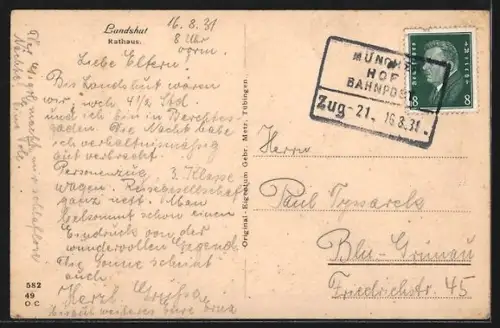 Landshut
Rathaus.
16.8.31
8 Uhr
vorm.
Liebe Eltern!
Bis Landshut waren
wir noch 4 1/2 Std.
und ich bin in Berchtes-
gaden. Die Nacht habe
ich verhältnismässig
gut verbracht.
Personenzug, 3. Klasse
Wagen. Reisegesellschaft
ganz nett. Man
bekommt schon einen
Eindruck von der
wundervollen Gegend.
Die Sonne scheint
auch.
Herzl.
582
49
O C
Original-Eigentum Gebr. Metz, Tübingen
MÜNCHEN
HOF
BAHNPOST
Zug-21. 16.8.31.
8 8
Herrn
Paul
Bln-Grünau
Friedrichstr. 45